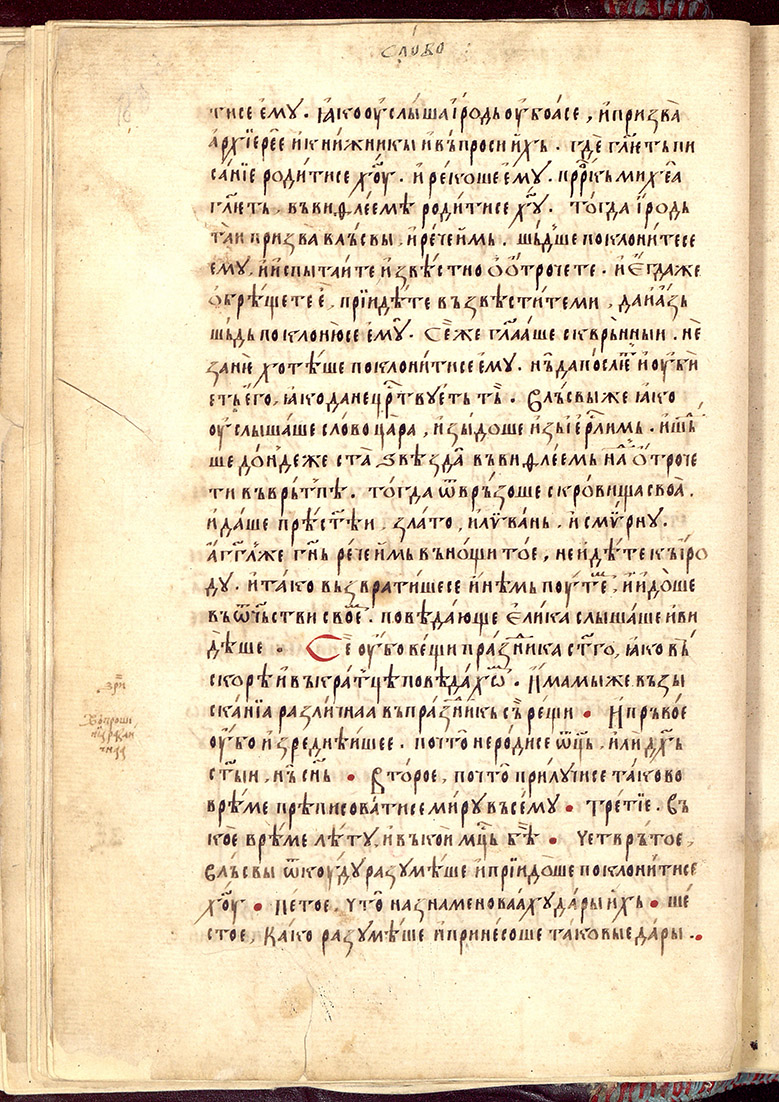 слово
тисе ѐмꙋ. ꙗ҆ко оу҆слы́ша і҆рѡдь оу҆боꙗ́се, и҆призва̀
архїерее̑ и҆кни́жникы и҆въпроси и҆хь. гдѐ гл҃ѥть пи
са́нїе роди́тисе хо҃у. и҆ре́коше ѐмꙋ. прⷪ҇ркь михе́а
гл҃ѥть, въвиѳлее́мѣ роди́тисе хꙋ҃. тогда̀ і҆рѡдь
та́и призва̀ влъсвы, и҆рече и҆мь. шь́дше поклони́тесе
ѐмꙋ, и҆и҆спыта́ите и҆звѣ́стно ѻ҆ѻ҆тро́чете. и҆є҆гда́же
ѻ҆брѣ́щете ѐ, прїидѣ́те възвѣсти́те ми, да и҆а҆зь
шь́дь поклоню́се ѐмꙋ̑. Се́же гл҃а́аше скврь́нныи. не
занѐ хотѣ́ше поклони́тисе ѐмꙋ. нь̏ да по́слїѐ и҆оу҆бѝ
еть ѐго, ꙗ҆ко да не црⷭ҇твꙋеть тъ̀. Влъсвы же ꙗ҆ко
оу҆слышаше сло́во ца́ра, и҆зы́доше и҆зь і҆ерⷭ҇лимь. и҆шь́
ше до́нⸯдеже ста̀ ѕвѣзда̀ въвиѳлее́мь на̑ ѻ҆троче
ти въврь́тпѣ. тогда ѿврь́зоше скро́вища своа̀.
и҆да́ше прѣстⷭ҇ѣи, зла́то, и҆лїꙋ́вань, и҆сми́рнꙋ.
а҆гг҃лже гн҃ь рече и҆мь въно́щи тое, не и҆дѣ́те къ і҆рѡ
дꙋ. и҆та́ко възврати́шесе и҆нѣмь поуте́мⸯ, и҆и҆до́ше
въѿчⷭ҇ьстви свое́мⸯ. повѣ́дающе ѐлика слышаше и҆ви
дѣ́ше. Сѐ оу҆бо ве́щи пра́зⷣника ст҃го, ꙗ҆ко въ́
ско́рѣ и҆въкра́тцѣ повѣ́дахѡмⸯ. И҆мамы же възы
ска́нїа разли́чнаа въпра́зⷣникь съ̏ рещи. И҆пръво́е
оу҆бо и҆зре́днѣишее. по что̀ не роди́се ѿц҃ь, и҆лѝ дх҃ь
ст҃ыи, нь̏ сн҃ь. Второе, по что̀ прилꙋ́чисе тако́во
врѣ́ме прѣписова́тисе ми́рꙋ въсе́мꙋ. тре́тїе. Въ
ко́е врѣ́ме лѣ́тꙋ, и҆въко́и мцⷭ҇ь бѣ̏. Чет врь́тое,
влъ́свы ѿкоу́дꙋ разꙋмѣ́ше и҆прїидо́ше поклони́тисе
хо҃у. пе́тое, что̀ назнаменоваахꙋ да́ры и҆хь. ше
стое, Ка́ко разꙋмѣ́ше и҆прине́соше тако́вые да́ры.
зрⸯи